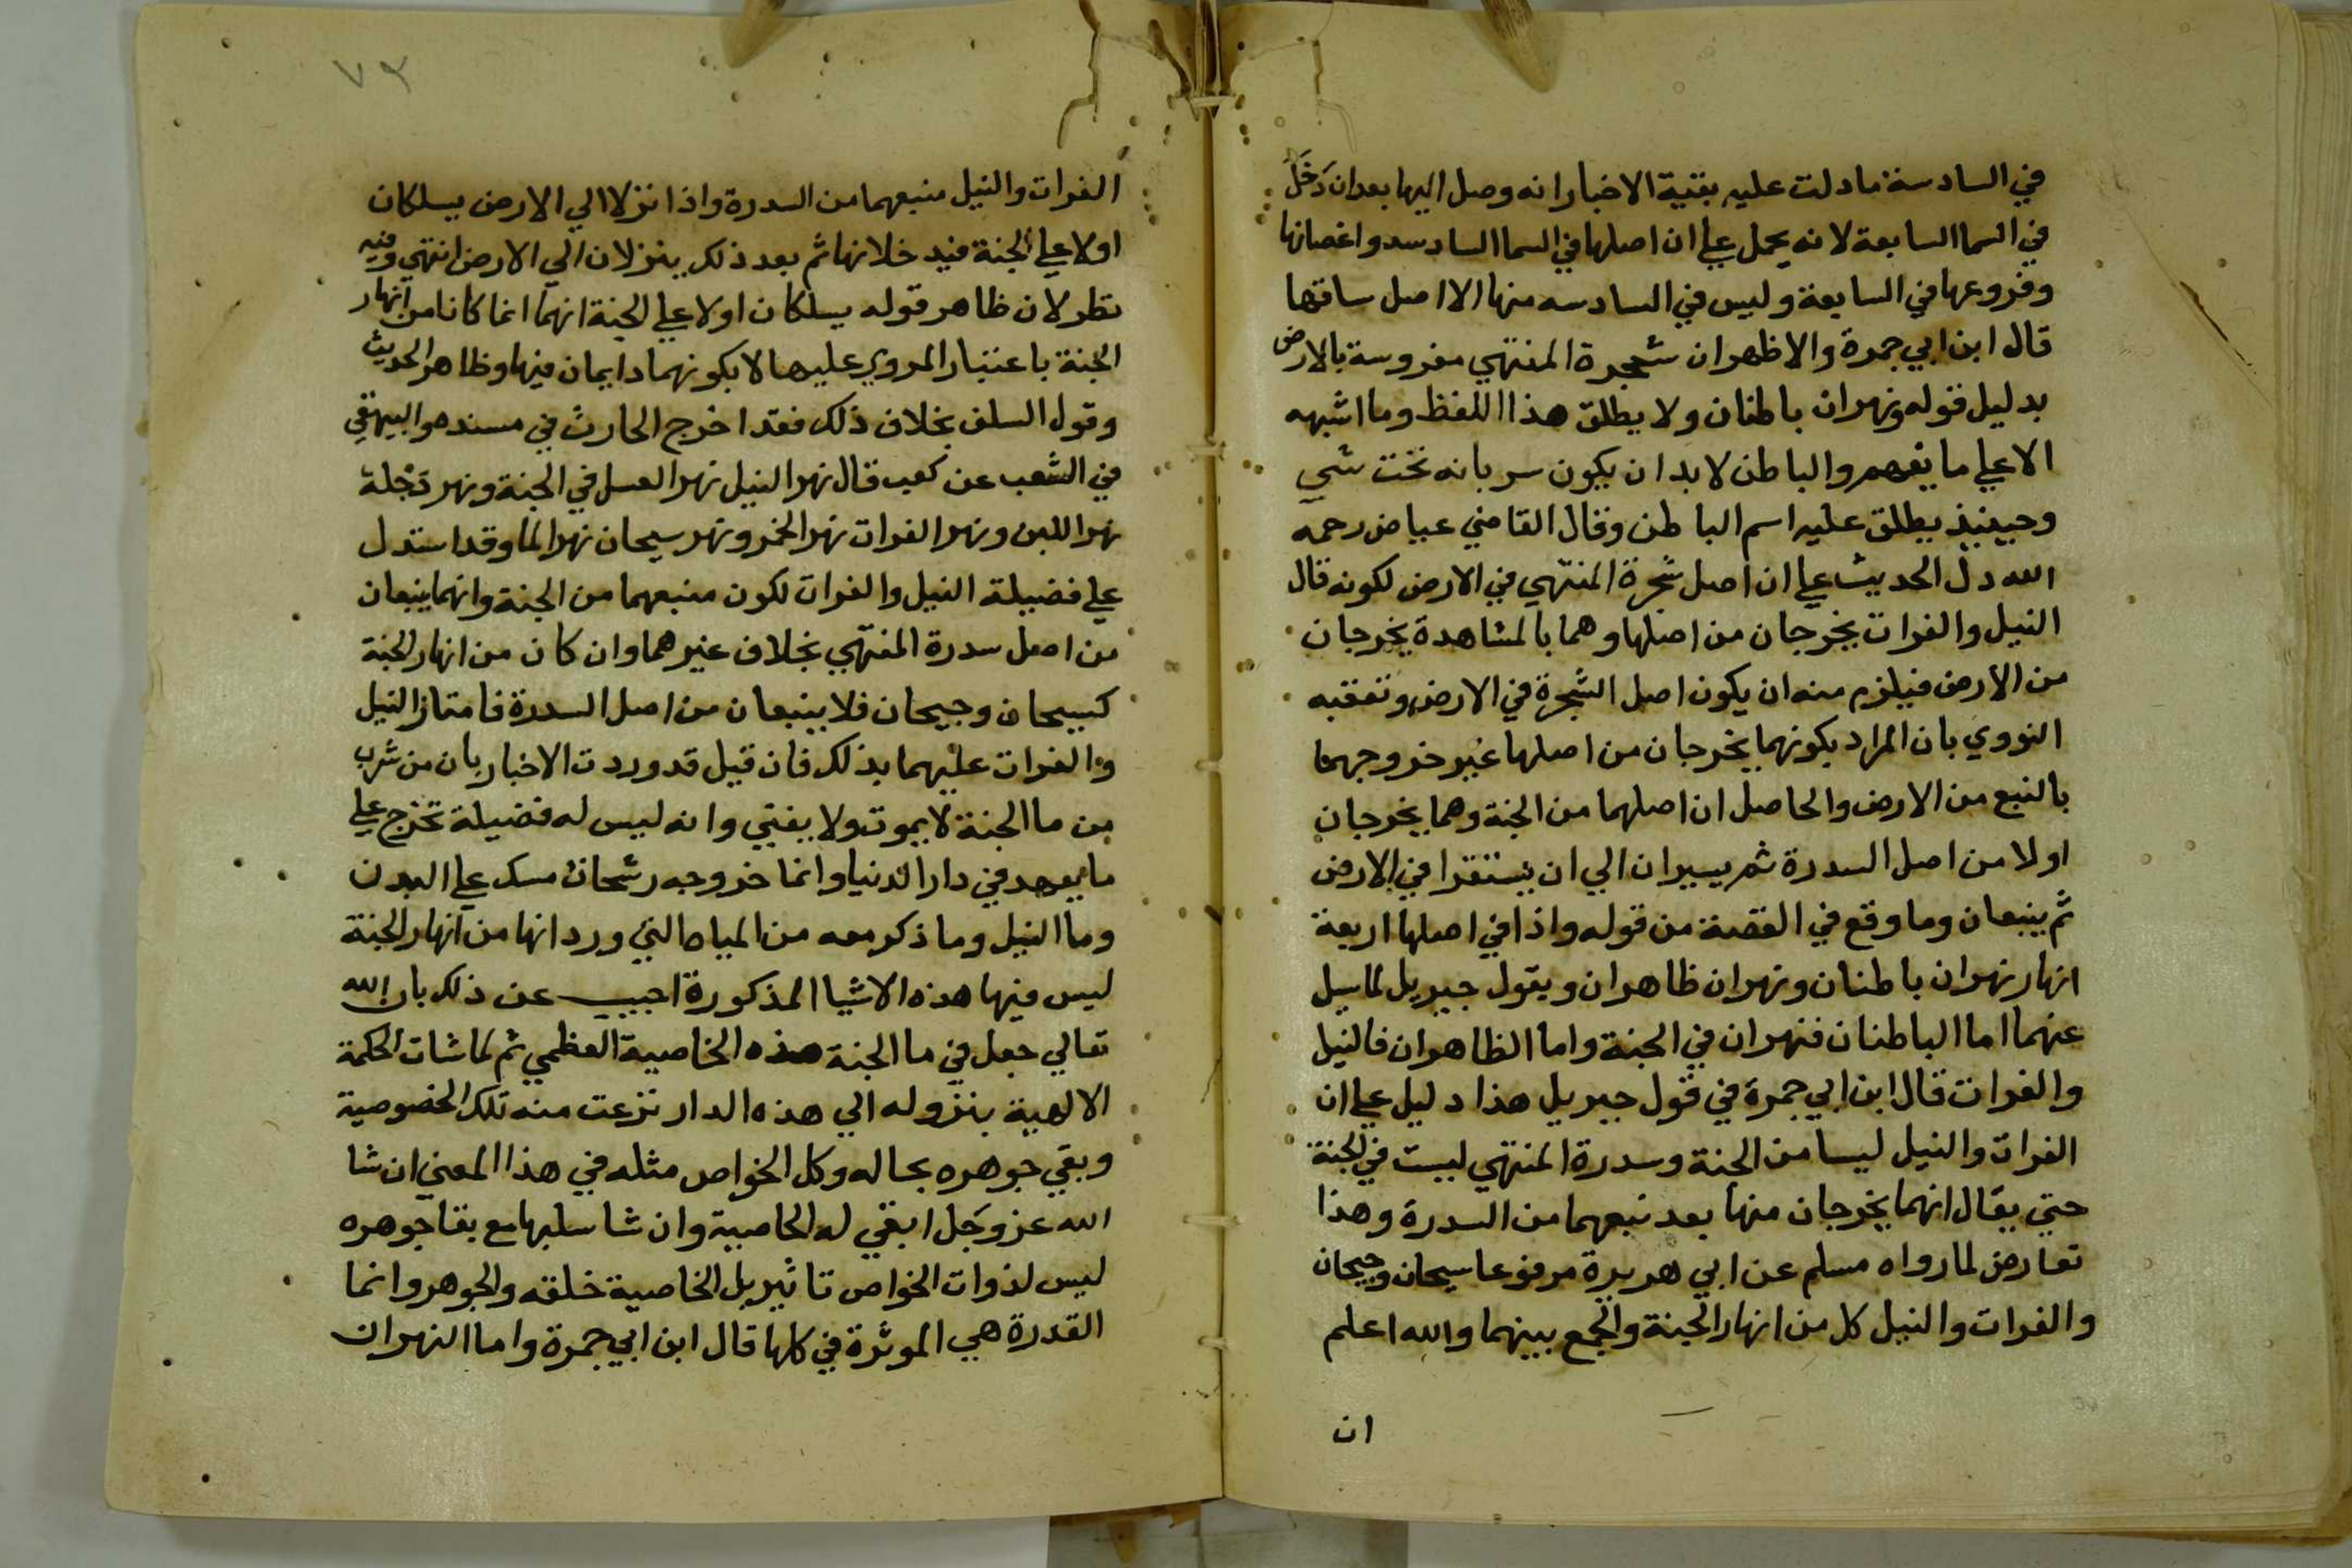 في السادسة ما دلت عليه بقية الاخبار انه وصل اليها بعد ان دَخَلَ
في السما السابعة لانه يحمل علي ان اصلها في السما السادسه واغصانها
وفروعها في السابعة وليس في السادسه منها الا اصل ساقها
قال ابن ابي جمرة والاظهر ان شجرة المنتهي مغروسة بالارض
بدليل قوله ونهران باطنان ولا يطلق هذا اللفظ وما اشبهه
الا علي ما يفهم والباطن لا بد ان يكون سريانه تحت شي
وحينئذ يطلق عليه اسم الباطن وقال القاضي عياض رحمه
الله دل الحديث علي ان اصل شجرة المنتهي في الارض لكونه قال
النيل والفرات يخرجان من اصلها وهما بالمشاهدة يخرجان
من الارض فيلزم منه ان يكون اصل الشجرة في الارض وتعقبه
النووي بان المراد بكونهما يخرجان من اصلها غير خروجهما
بالنبع من الارض والحاصل ان اصلهما من الجنة وهما يخرجان
اولا من اصل السدرة ثم يسيران الي ان يستقرا في الارض
ثم ينبعان وما وقع في القصة من قوله واذا في اصلها اربعة
انهار نهران باطنان ونهران ظاهران ويقول جبريل لما سيل
عنهما اما الباطنان فنهران في الجنة واما الظاهران فالنيل
والفرات قال ابن ابي جمرة في قول جبريل هذا دليل علي ان
الفرات والنيل ليسا من الجنة وسدرة المنتهي ليست في الجنة
حتي يقال انهما يخرجان منها بعد نبعهما من السدرة وهذا
تعارض لما رواه مسلم عن ابي هريرة مرفوعا سيحان وجيحان
والفرات والنيل كل من انهار الجنة والجمع بينهما والله اعلم
ان
٧٣
الفرات والنيل منبعهما من السدرة واذا نزلا الي الارض يسلكان
اولا علي الجنة فيدخلانها ثم بعد ذلك ينزلان الي الارض انتهي وفيه
نظر لان ظاهر قوله يسلكان اولا علي الجنة انهما انما كانا من انهار
الجنة باعتبار المروي عليها لا بكونهما دايمان فيها وظاهر الحديث
وقول السلف بخلاف ذلك فقد اخرج الحارث في مسنده والبيهقي
في الشعب عن كعب قال نهر النيل نهر العسل في الجنة ونهر دَجْلة
نهر اللبن ونهر الفرات نهر الخمر ونهر سيحان نهر الما وقد استدل
علي فضيلة النيل والفرات لكون منبعهما من الجنة وانهما ينبعان
من اصل سدرة المنتهي بخلاف غيرهما وان كان من انهار الجنة
كسيحان وجيحان فلا ينبعان من اصل السدرة فامتاز النيل
والفرات عليهما بذلك فان قيل قد وردت الاخبار بان من شرب
من ما الجنة لا يموت ولا يفني وانه ليس له فضيلة تخرج علي
ما يعهد في دار الدنيا وانما خروجه رشحان مسك علي البدن
وما النيل وما ذكر معه من المياه التي ورد انها من انهار الجنة
ليس فيها هذه الاشيا المذكورة اجيب عن ذلك بان الله
تعالي جعل في ما الجنة هذه الخاصية العظمي ثم لما شات الحكمة
الالهية بنزوله الي هذه الدار نزعت منه تلك الخصوصية
وبقي جوهره بحاله وكل الخواص مثله في هذا المعني ان شا
الله عز وجل ابقي له الخاصية وان شا سلبها مع بقا جوهره
ليس لذوات الخواص تاثير بل الخاصية خلقه والجوهر وانما
القدرة هي الموثرة في كلها قال ابن ابي جمرة واما النهران